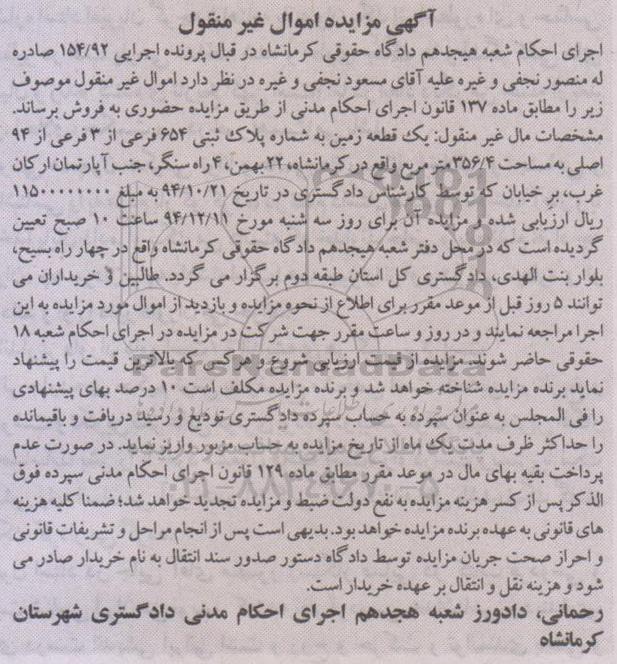 آگهی مزایده اموال غیر منقول
اجرای احکام شعبه هیجدهم دادگاه حقوقی کرمانشاه در قبال پرونده اجرایی ۱۵۴/۹۲ صادره
له منصور نجفی و غیره علیه آقای مسعود نجفی و غیره در نظر دارد اموال غیر منقول موصوف
زیر را مطابق ماده ۱۳۷ قانون اجرای احکام مدنی از طریق مزایده حضوری به فروش برساند.
مشخصات مال غیر منقول: یک قطعه زمین به شماره پلاک ثبتی ۶۵۴ فرعی از ۳ فرعی از ۹۴
اصلی به مساحت ۳۵۶/۴ متر مربع واقع در کرمانشاه، ۲۲ بهمن، ۴ راه سنگر، جنب آپارتمان ارکان
غرب، بر خیابان که توسط کارشناس دادگستری در تاریخ ۹۴/۱۰/۲۱ به مبلغ ۱۱۵۰۰۰۰۰۰۰۰
ریال ارزیابی شده و مزایده آن برای روز سه شنبه مورخ ۹۴/۱۲/۱۱ ساعت ۱۰ صبح تعیین
گردیده است که در محل دفتر شعبه هیجدهم دادگاه حقوقی کرمانشاه واقع در چهار راه بسیح،
بلوار بنت الهدی، دادگستری کل استان طبقه دوم برگزار می گردد. طالبین و خریداران می
توانند ۵ روز قبل از موعد مقرر برای اطلاع از نحوه مزایده و بازدید از اموال مورد مزایده به این
اجرا مراجعه نمایند و در روز و ساعت مقرر جهت شرکت در مزایده در اجرای احکام شعبه ۱۸
حقوقی حاضر شوند. مزایده از قیمت ارزیابی شروع و هر کس که بالاترین قیمت را پیشنهاد
نماید برنده مزایده شناخته خواهد شد و برنده مزایده مکلف است ۱۰ درصد بهای پیشنهادی
را فی المجلس به عنوان سپرده به حساب سپرده دادگستری تودیع و رسید دریافت و باقیمانده
را حداکثر ظرف مدت یک ماه از تاریخ مزایده به حساب مزبور واریز نماید. در صورت عدم
پرداخت بقیه بهای مال در موعد مقرر مطابق ماده ۱۲۹ قانون اجرای احکام مدنی سپرده فوق
الذکر پس از کسر هزینه مزایده به نفع دولت ضبط و مزایده تجدید خواهد شد؛ ضمنا کلیه هزینه
های قانونی به عهده برنده مزایده خواهد بود. بدیهی است پس از انجام مراحل و تشریفات قانونی
و احراز صحت جریان مزایده توسط دادگاه دستور صدور سند انتقال به نام خریدار صادر می
شود و هزینه نقل و انتقال بر عهده خریدار است.
رحمانی، دادورز شعبه هجدهم اجرای احکام مدنی دادگستری شهرستان
کرمانشاه
ParsNamadData